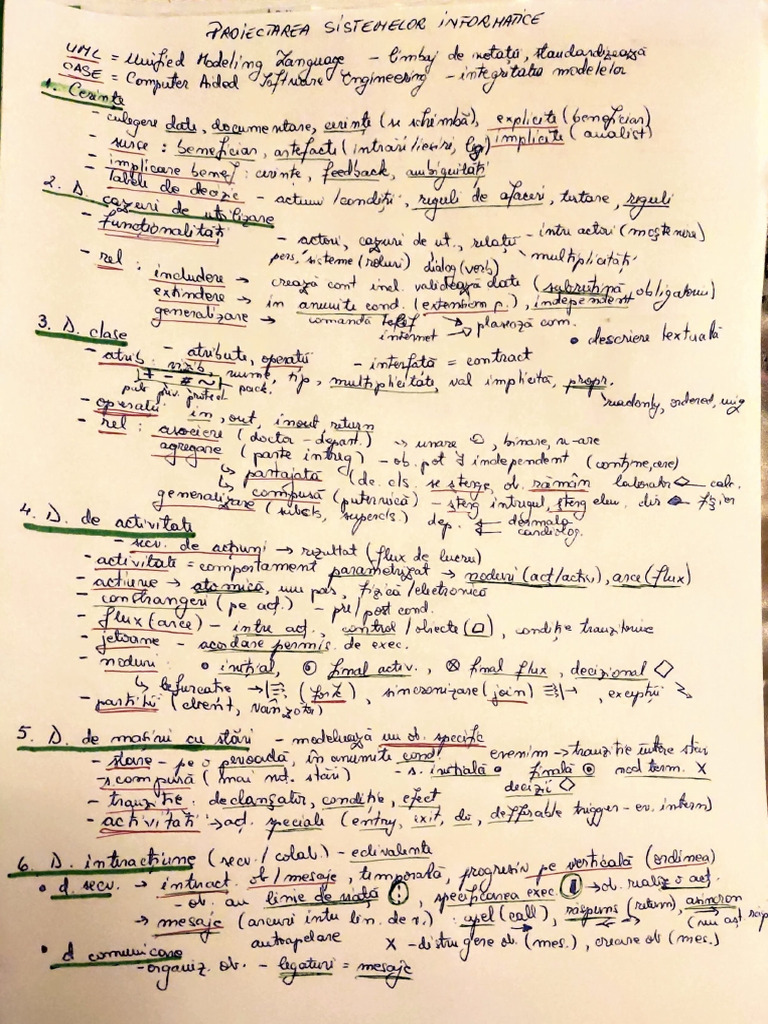 PROIECTAREA SISTEMELOR INFORMATICE
UML = Unified Modeling Language - limbaj de notație, standardizează
CASE = Computer Aided Software Engineering - integritatea modelelor
1. Cerințe
- culegere date, documentare, cerințe (se schimbă), explicite (beneficiar)
implicite (analist)
- surse : beneficiar, artefacte (intrări/ieșiri, legi)
- implicare benef : cerințe, feedback, ambiguități
- Tabele de decizie - acțiuni / condiții, reguli de afaceri, testare, reguli
2. D. cazuri de utilizare
- funcționalități - actori, cazuri de ut., relații - între actori (moștenire)
pers, sisteme (roluri) dialog (verb) multiplicități
- rel : includere → crează cont incl. validează date (subrutină obligatorii)
extindere → în anumite cond. (extension p.), independent
generalizare → comandă telef → plasează com.
internet
• descriere textuală
3. D. clase
- atribute, operații - interfață = contract
- atrib. vizib, nume, tip, multiplicitate, val implicită, propr.
+ - # ~
pub. priv. protect pack. readonly, ordered, uniq
- operații in, out, inout return
- rel : asociere (doctor - depart.) → unare, binare, n-are
agregare (parte întreg) - ob. pot ∃ independent (conține, are)
↳ partajată (de. cls. se șterge, ob. rămân laborator ◇— calc.
↳ compusă (puternică) - șterg întregul, șterg elem. dir ◆— fișier
generalizare (subcls, supercls.) dep. dermato
cardiolog.
4. D. de activitate
- secv. de acțiuni → rezultat (flux de lucru)
- activitate = comportament parametrizat → noduri (act/activ), arce (flux)
- acțiune → atomică, un pas, fizică / electronică
- constrângeri (pe act.) - pre / post cond.
- flux (arce) - între act., control / obiecte (□), condiție tranziționare
- jetoane - acordare permis. de exec.
- noduri : • inițial, ◉ final activ., ⊗ final flux, decizional ◇
↳ bifurcație → (fork), sincronizare (join) →, excepții
- partiții (client, vânzător)
5. D. de mașini cu stări - modelează un ob. specific
- stare - pe o perioadă, în anumite cond. evenim → tranziție între stări
- s compusă (mai mt. stări) - s. inițială • finală ◉ nod term. X
decizii ◇
- tranziție : declanșator, condiție, efect
- activități → act. speciale (entry, exit, do, defferable trigger - ev. intern)
6. D. interacțiune (secv. / colab.) - echivalente
• d. secv. → interact. ob / mesaje, temporală, progresiv pe verticală (ordinea)
- ob. au linie de viață, specificarea exec. → ob. realiz. o act.
→ mesaje (arcuri între lin. de v.) : apel (call), răspuns (return), asincron
autoapelare X - distrugere ob. (mes.), creare ob (mes.) (nu așt. răsp
• d comunicare
- organiz. ob. - legături = mesaje